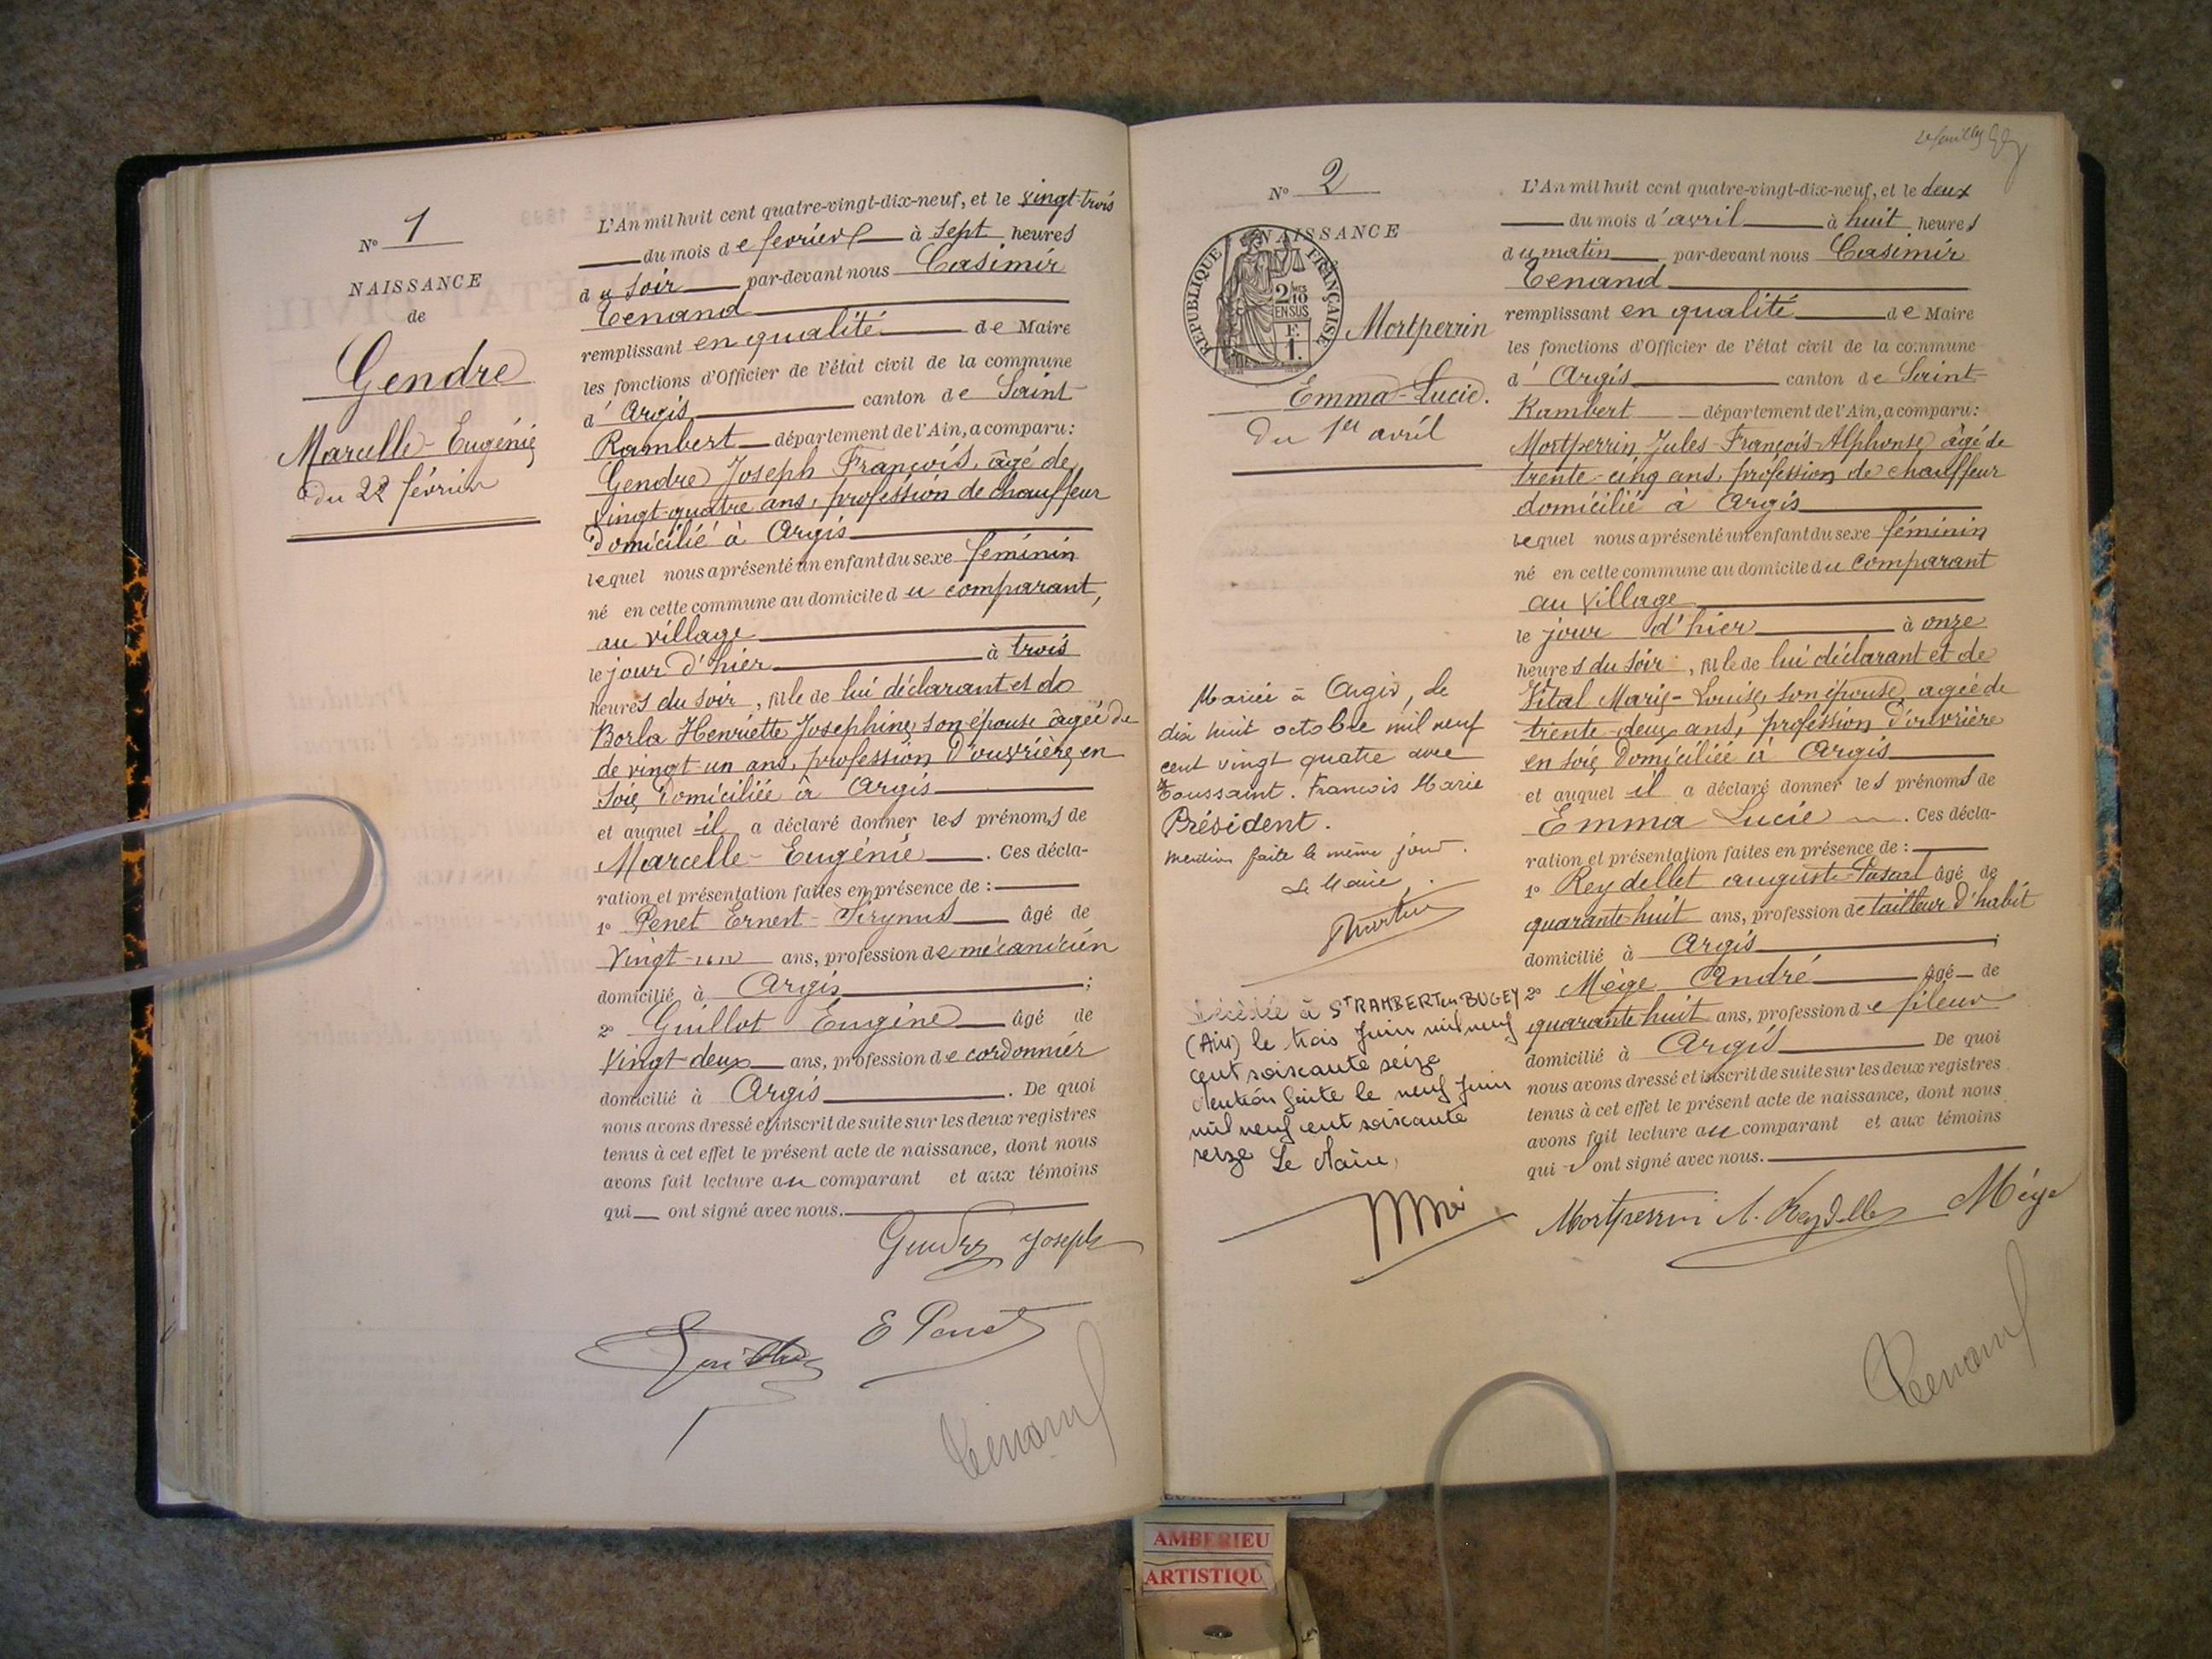 N° 1
NAISSANCE
de
Gendre
Marcelle-Eugénie
Du 22 février
L'An mil huit cent quatre-vingt-dix-neuf, et le vingt-trois
du mois de février à sept heures
du soir par-devant nous Casimir
Tenand
remplissant en qualité de Maire
les fonctions d'Officier de l'état civil de la commune
d'Argis canton de Saint-
Rambert département de l'Ain, a comparu:
Gendre Joseph François, âgé de
vingt-quatre ans, profession de chauffeur
domicilié à Argis
lequel nous a présenté un enfant du sexe féminin
né en cette commune au domicile du comparant,
au village
le jour d'hier à trois
heures du soir, fille de lui déclarant et de
Borla Henriette Joséphine, son épouse âgée de
de vingt-un ans, profession d'ouvrière en
soie domiciliée à Argis
et auquel il a déclaré donner les prénoms de
Marcelle-Eugénie. Ces décla-
ration et présentation faites en présence de:
1° Penet Ernest- âgé de
vingt-un ans, profession de mécanicien
domicilié à Argis;
2° Guillot Eugène âgé de
vingt-deux ans, profession de cordonnier
domicilié à Argis. De quoi
nous avons dressé et inscrit de suite sur les deux registres
tenus à cet effet le présent acte de naissance, dont nous
avons fait lecture au comparant et aux témoins
qui ont signé avec nous.
Gendre Joseph
Guillot E Penet
Tenand
N° 2
NAISSANCE
REPUBLIQUE FRANÇAISE
2/10
EN SUS
Mortperrin
Emma-Lucie.
Du 1er avril
Mariée à Argis, le
dix huit octobre mil neuf
cent vingt quatre avec
Toussaint. François Marie
Président.
Mention faite le même jour.
Le Maire,
Décédée à ST RAMBERT en BUGEY
(Ain) le trois Juin mil neuf
cent soixante seize
Mention faite le neuf Juin
mil neuf cent soixante
seize Le Maire,
2e feuillet
L'An mil huit cent quatre-vingt-dix-neuf, et le deux
du mois d'avril à huit heures
du matin par-devant nous Casimir
Tenand
remplissant en qualité de Maire
les fonctions d'Officier de l'état civil de la commune
d'Argis canton de Saint-
Rambert département de l'Ain, a comparu:
Mortperrin Jules-François-Alphonse, âgé de
trente-cinq ans, profession de chauffeur
domicilié à Argis
lequel nous a présenté un enfant du sexe féminin
né en cette commune au domicile du comparant
au village
le jour d'hier à onze
heures du soir, fille de lui déclarant et de
Vital Marie-Louise, son épouse, agée de
trente-deux ans, profession d'ouvrière
en soie, domiciliée à Argis
et auquel il a déclaré donner les prénoms de
Emma Lucie. Ces décla-
ration et présentation faites en présence de:
1° Reydellet auguste-Pascal âgé de
quarante-huit ans, profession de tailleur d'habit
domicilié à Argis;
2° Mège André âgé de
quarante huit ans, profession de fileur
domicilié à Argis De quoi
nous avons dressé et inscrit de suite sur les deux registres
tenus à cet effet le présent acte de naissance, dont nous
avons fait lecture au comparant et aux témoins
qui ont signé avec nous.
Mortperrin A. Reydellet Mège
Tenand
AMBERIEU
ARTISTIQU